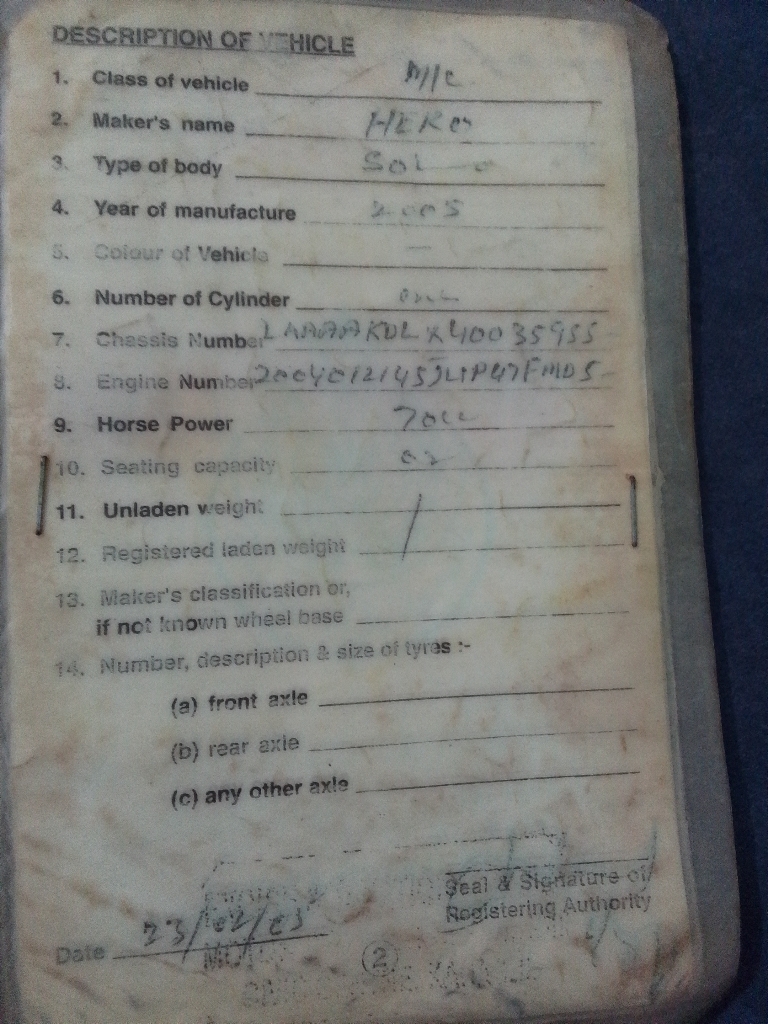 DESCRIPTION OF VEHICLE
1. Class of vehicle M/C
2. Maker's name HERO
3. Type of body SOLO
4. Year of manufacture 2005
5. Colour of Vehicle —
6. Number of Cylinder one
7. Chassis Number LAAAAKDLX40035955
8. Engine Number
9. Horse Power 70cc
10. Seating capacity 02
11. Unladen weight
12. Registered laden weight
13. Maker's classification or,
if not known wheel base
14. Number, description & size of tyres :-
(a) front axle
(b) rear axle
(c) any other axle
Seal & Signature of
Registering Authority
Date 23/02/05
2